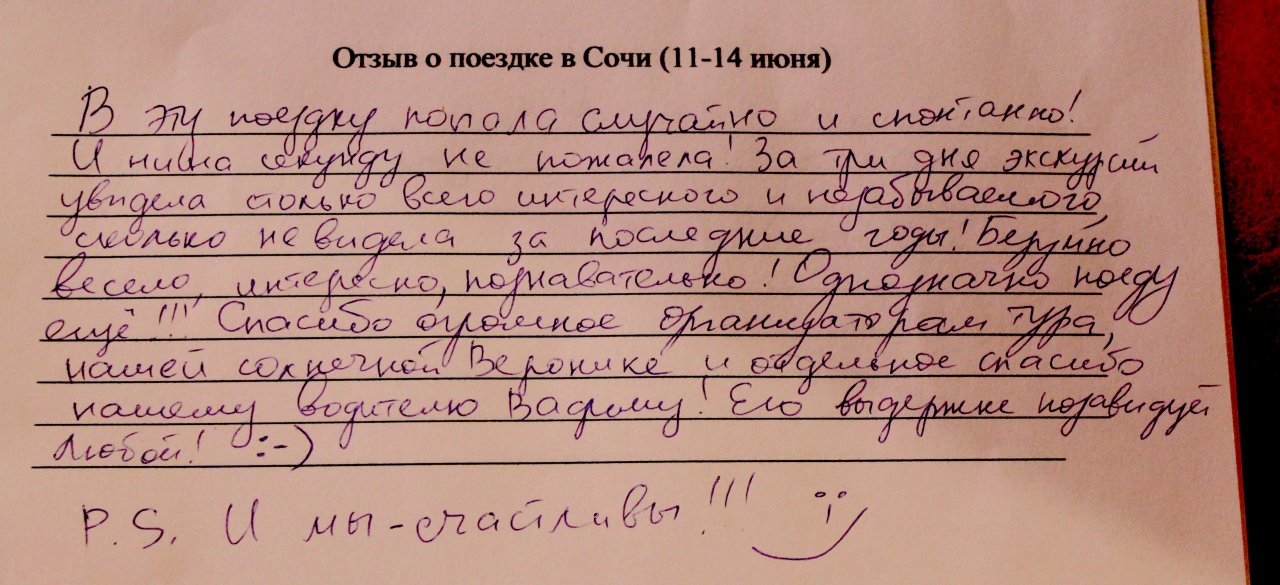 Отзыв о поездке в Сочи (11-14 июня)
В эту поездку попала случайно и спонтанно!
И ни на секунду не пожалела! За три дня экскурсий
увидела столько всего интересного и незабываемого,
сколько не видела за последние годы! Безумно
весело, интересно, познавательно! Однозначно поеду
ещё!!! Спасибо огромное организаторам тура,
нашей солнечной Веронике и отдельное спасибо
нашему водителю Вадиму! Его выдержке позавидует
любой! :-)
P.S. И мы - счастливы!!! :)